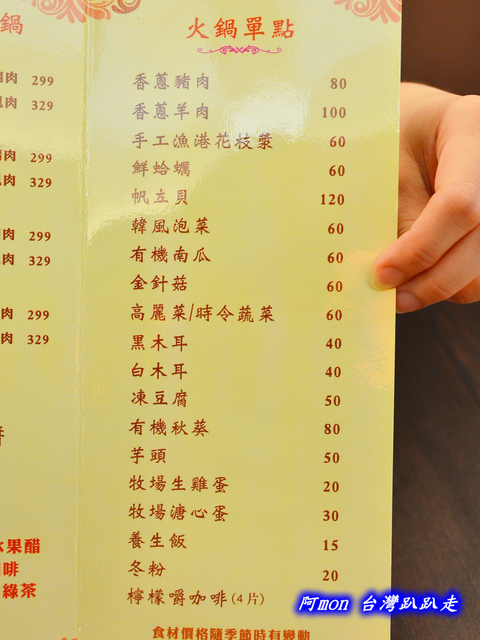 鍋
肉 299
肉 329
肉 299
肉 329
肉 299
肉 329
肉 299
肉 329
水果醋
啡
綠茶
火鍋單點
香蔥豬肉 80
香蔥羊肉 100
手工漁港花枝漿 60
鮮蛤蠣 60
帆立貝 120
韓風泡菜 60
有機南瓜 60
金針菇 60
高麗菜/時令蔬菜 60
黑木耳 40
白木耳 40
凍豆腐 50
有機秋葵 80
芋頭 50
牧場生雞蛋 20
牧場溏心蛋 30
養生飯 15
冬粉 20
檸檬嚼咖啡(4片)
食材價格隨季節時有變動
阿mon 台灣趴趴走